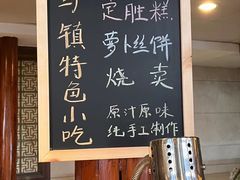 镇特色小吃
定胜糕
萝卜丝饼
烧卖
原汁原味
纯手工制作